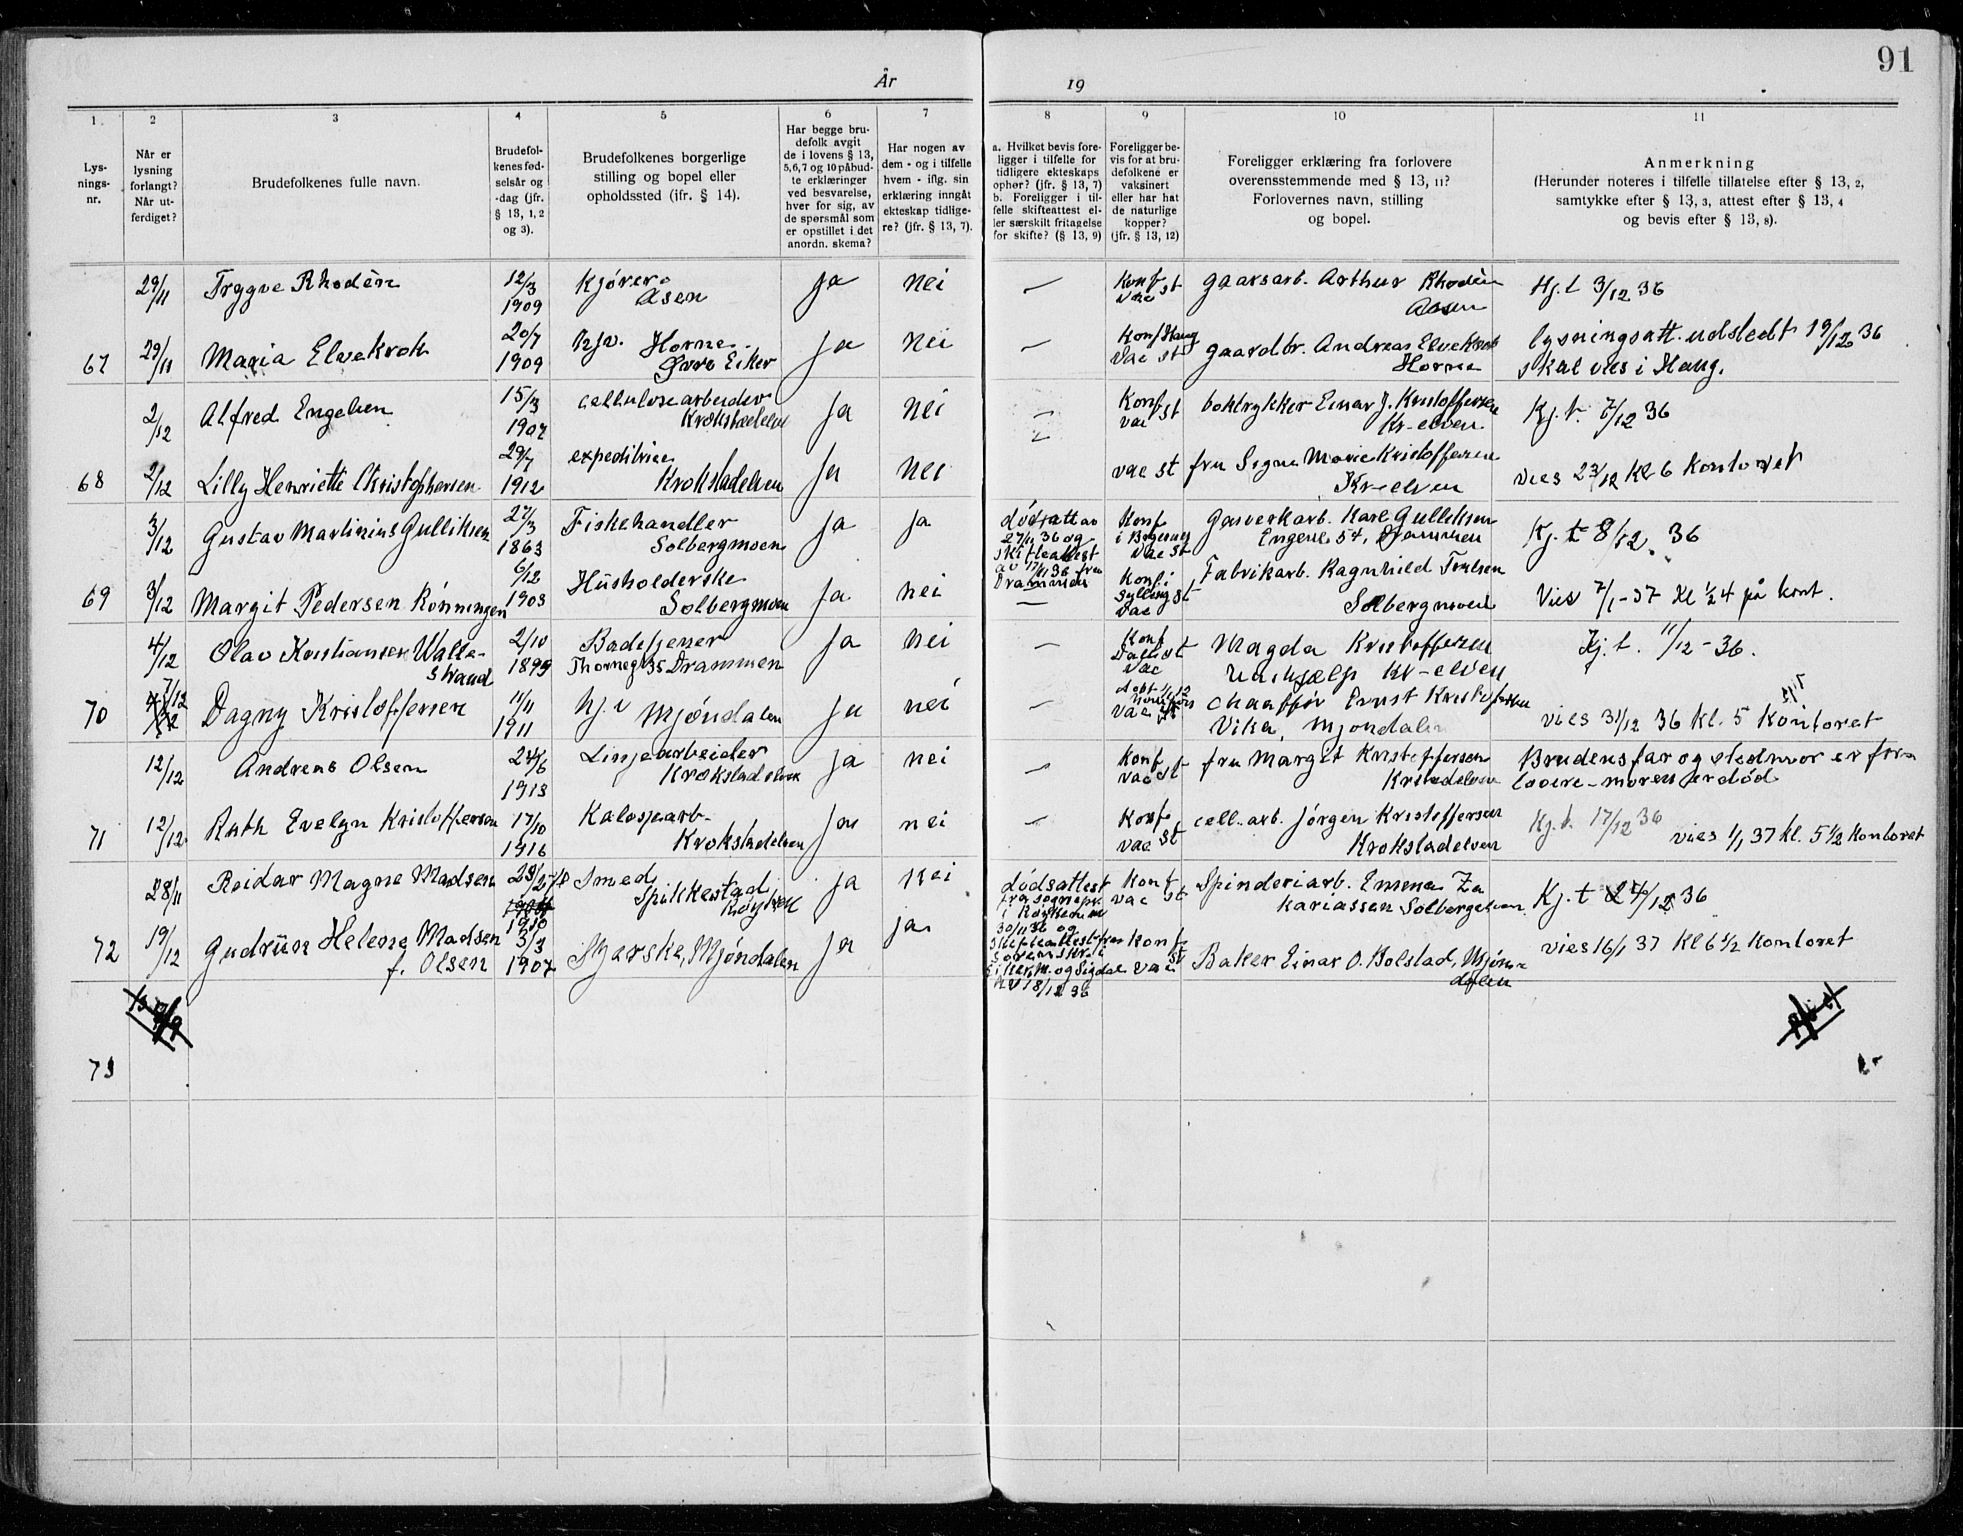 91
År 19
1
2
3
4
5
6
7
8
9
10
11
Lys-
nings-
nr.
Når er
lysning
forlangt?
Når ut-
ferdiget?
Brudefolkenes fulle navn.
Brudefol-
kenes fød-
selsår og
-dag (jfr.
§ 13, 1, 2
og 3).
Brudefolkenes borgerlige
stilling og bopel eller
opholdssted (ifr. § 14).
Har begge bru-
defolk avgit
de i lovens § 13,
5,6,7 og 10 påbud-
te erklæringer
ved besvarelse,
hver for sig, av
de spørsmål som
er opstillet i det
anordn. skema?
Har nogen av
dem - og i tilfelle
hvem - iflg. sin
erklæring inngåt
ekteskap tidlige-
re? (jfr. § 13, 7).
a. Hvilket bevis fore-
ligger i tilfelle for
tidligere ekteskaps
ophør? (jfr. § 13, 7)
b. Foreligger i til-
felle skifteattest el-
ler særskilt fritagelse
for skifte? (§ 13, 9)
Foreligger be-
vis for at bru-
defolkene er
vaksinert
eller har hat
de naturlige
kopper?
(jfr. § 13, 12)
Foreligger erklæring fra forlovere
overensstemmende med § 13, 11?
Forlovernes navn, stilling
og bopel.
Anmerkning
(Herunder noteres i tilfelle tillatelse efter § 13, 2,
samtykke efter § 13, 3, attest efter § 13, 4
og bevis efter § 13, 8).
29/11 Trygve Rhodèn 12/3 1909 Kjører Åsen ja nei — Konf vac st gaarsarb. Arthur Rhodèn Aasen Kj.t 3/12 36
67 29/11 Maria Elvekrok 20/7 1909 hjv. Horne Øvre Eiker ja nei — Konf Haug vac st gaardbr. Andreas Elvekrok Horne lysningsatt. udstedt 19/12 36
skal vies i Haug.
2/12 Alfred Engelsen 15/3 1907 cellulosearbeider Krokstadelva ja nei — Konf vac st boktrykker Einar J. Kristoffersen Kr-elven Kj.t. 7/12 36
68 2/12 Lilly Henriette Christophersen 29/7 1912 expeditrise Krokstadelven ja nei vac st fru Signe Marie Kristoffersen Kr-elven vies 23/12 kl 6 kontoret
3/12 Gustav Martinius Gulliksen 27/3 1863 Fiskehandler Solbergmoen ja ja dødsatt av
27/11 36 og
skifteattest
av 17/11 36 fra
Drammen
Konf i vac st Gasverkarb. Karl Gulliksen Engene 54, Drammen Kj. t 8/12. 36
69 3/12 Margit Pedersen Rönningen 6/12 1903 Husholderske Solbergmoen ja nei — Konf i Sylling st vac Fabrikarb. Ragnhild Solbergmoen Vies 7/1-37 Kl 1/2 4 på kont.
4/12 Olav Kristiansen Walle-
Strand 2/10 1899 Badetjener Thornegt 35 Drammen ja nei — Konf st vac Magda Kristoffersen Kr-elven Kj.t. 11/12-36.
70 7/12 Dagny Kristoffersen 11/11 1911 hj.v Mjöndalen ja nei — vac chauffør Ernst Kristoffersen Vika, Mjöndalen vies 31/12 36 kl. 5 Kontoret
12/12 Andreas Olsen 24/6 1913 Linjearbeider Krokstadelven ja nei — Konf vac st fru Margit Kristoffersen Krstadelven Brudens far og stedmor er for-
lovere - moren er død
71 12/12 Ruth Evelyn Kristoffersen 17/10 1916 Kalosjearb. Krokstadelven ja nei — Konf vac st cell. arb. Jørgen Kristoffersen Krokstadelven Kj.t. 17/12 36
vies 1/1 37 kl. 5 1/2 kontoret
28/11 Reidar Magne Madsen 1910 Smed, Spikkestad Røyken ja nei Konf vac st Spinderiarb. Emma Za
kariassen Solbergelven Kj.t 24/12 36
72 19/12 Gudrun Helene Madsen
f. Olsen 3/3 1907 Mjöndalen ja ja dødsattest
fra sognepr.
i Røyken av
30/11 36 og
skifteattest fra
sorenskr. i
Eiker, M. og Sigdal
av 18/12 36
Konf st vac Baker Einar O. Bolstad, Mjön-
dalen vies 16/1 37 Kl 6 1/2 Kontoret
73